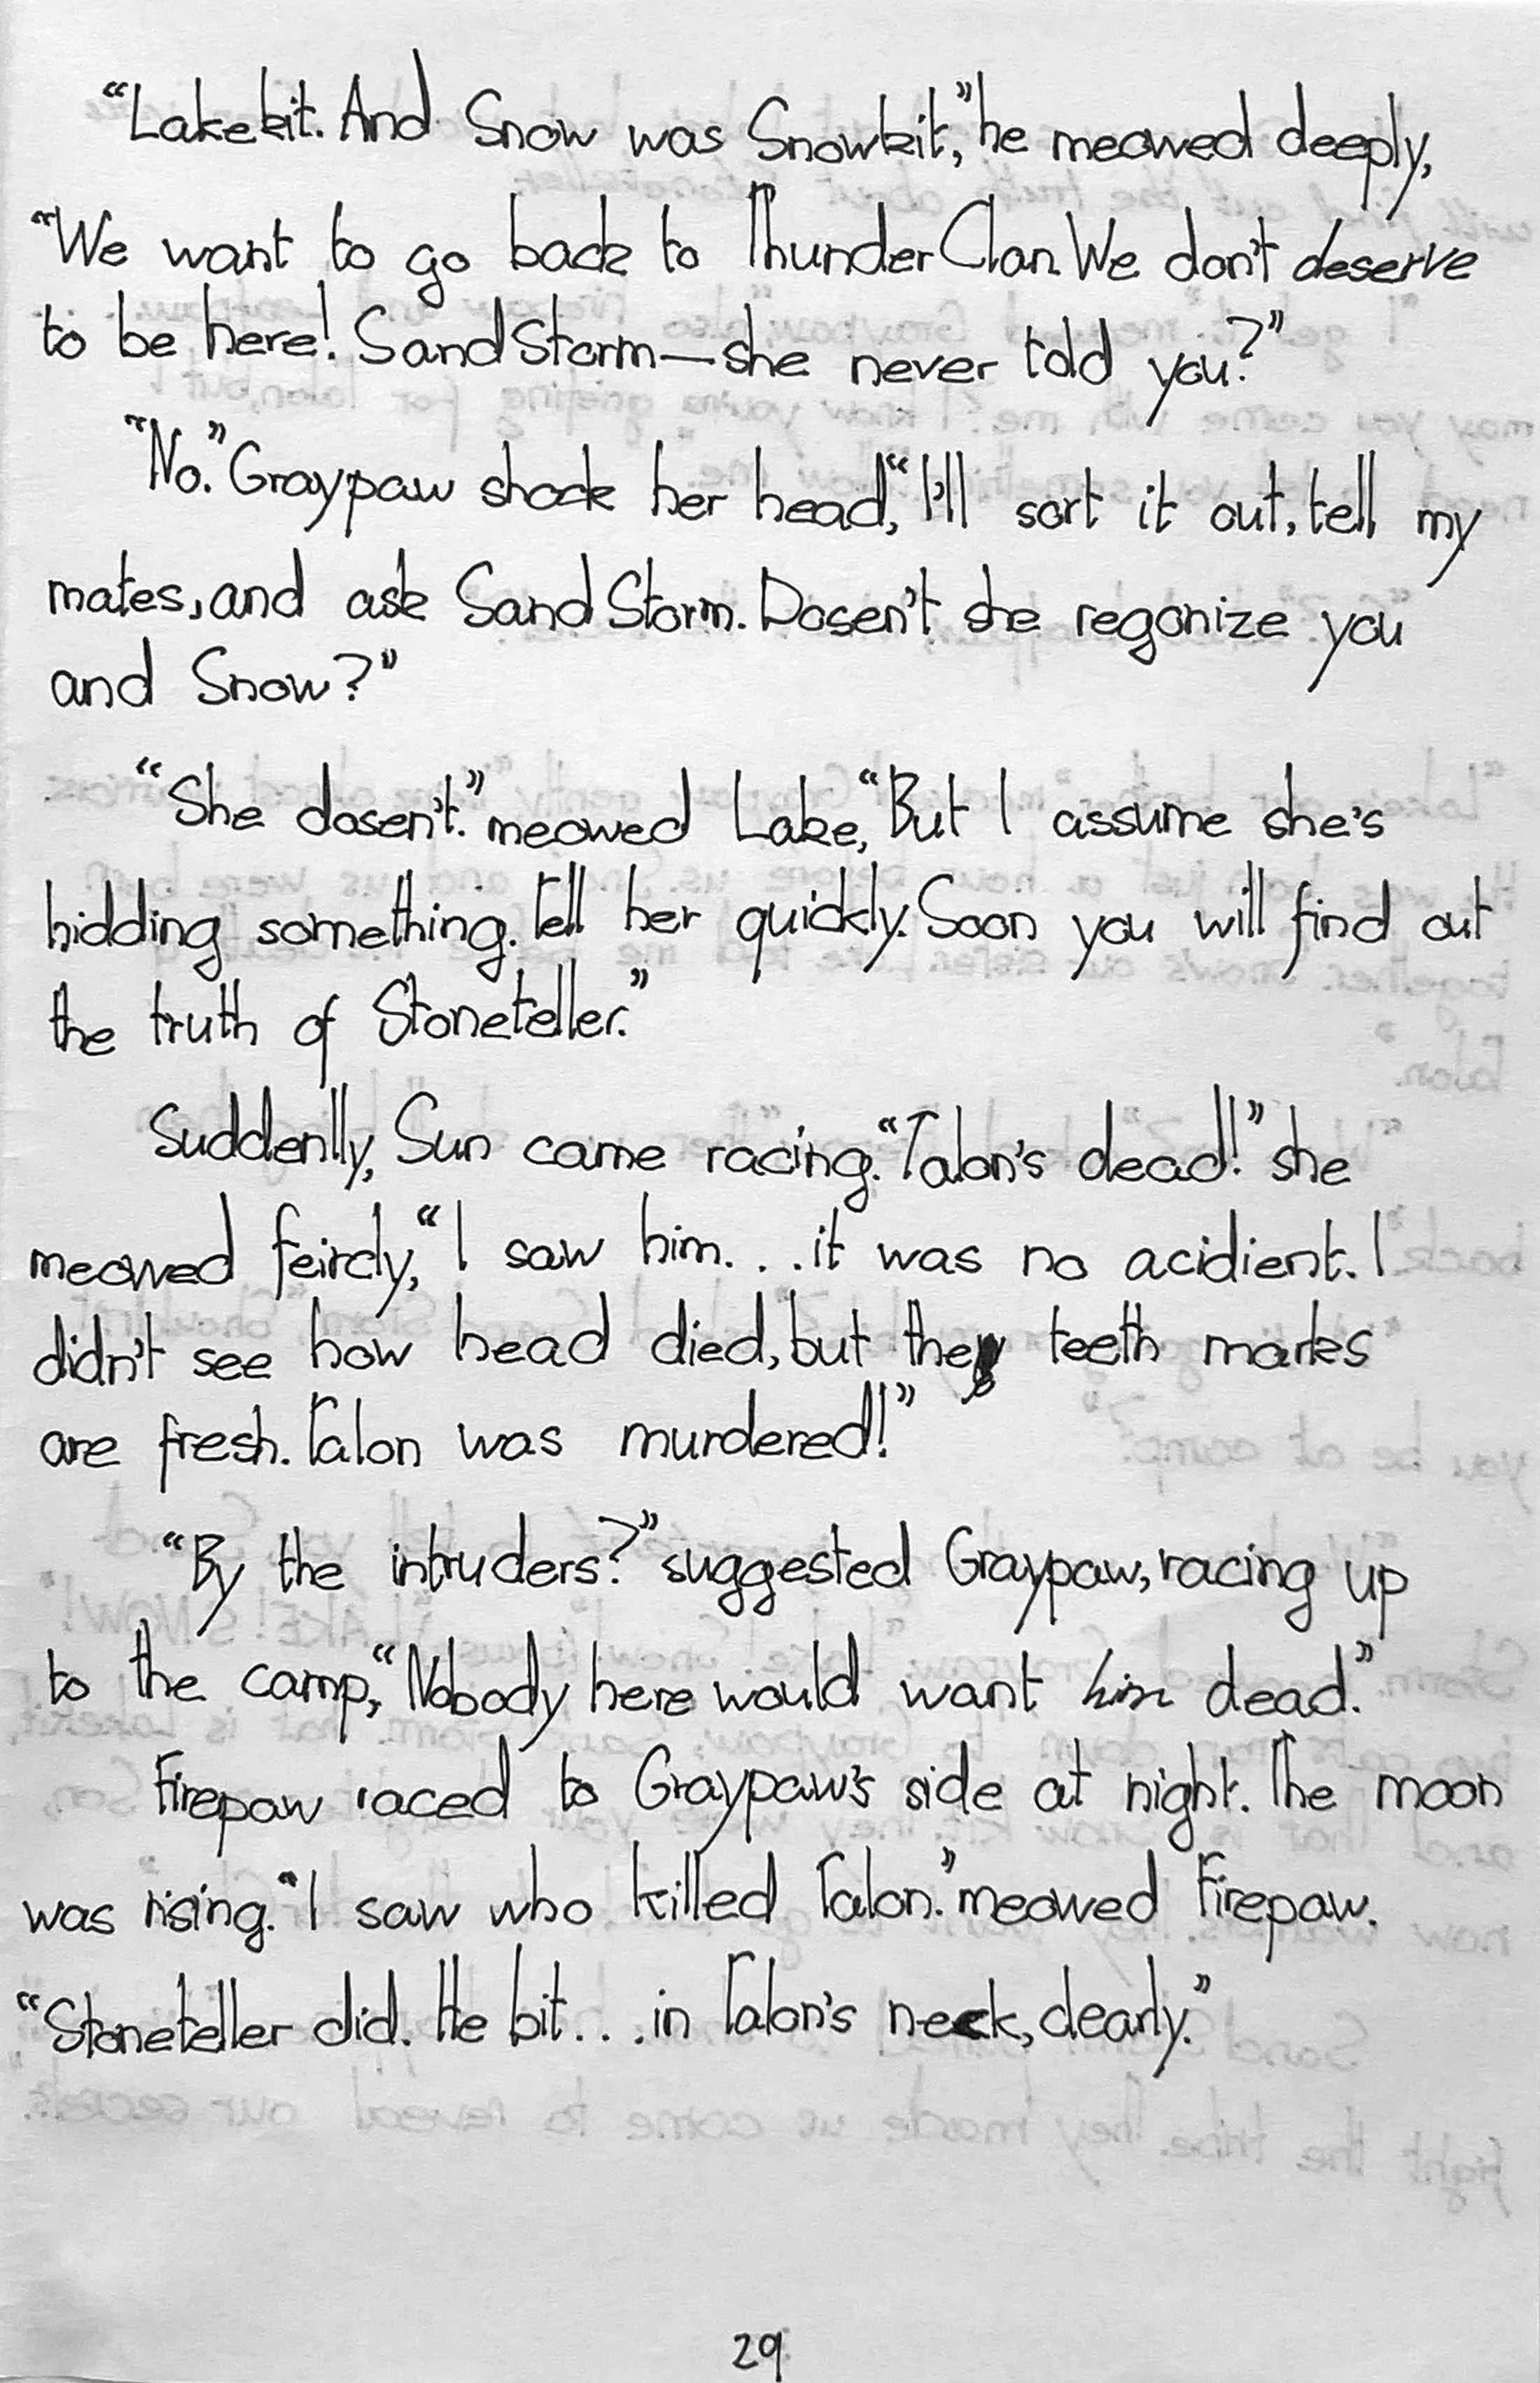 “Lakekit. And Snow was Snowkit,” he meowed deeply,
“We want to go back to ThunderClan. We don't deserve
to be here! SandStorm—she never told you?”
“No.” Graypaw shook her head, “I'll sort it out, tell my
mates, and ask SandStorm. Dosen't she regonize you
and Snow?”
“She dosen't.” meowed Lake, “But I assume she's
hidding something. Tell her quickly. Soon you will find out
the truth of Stoneteller.”
Suddenlly, Sun came racing. “Talon's dead!” she
meowed feircly, “I saw him. . . it was no acidient. I
didn't see how head died, but they teeth marks
are fresh. Talon was murdered!”
“By the intruders?” suggested Graypaw, racing up
to the camp, “Nobody here would want him dead.”
Firepaw raced to Graypaw's side at night. The moon
was rising. “I saw who killed Talon.” meowed Firepaw.
“Stoneteller did. He bit. . . in Talon's neck, clearly.”
29